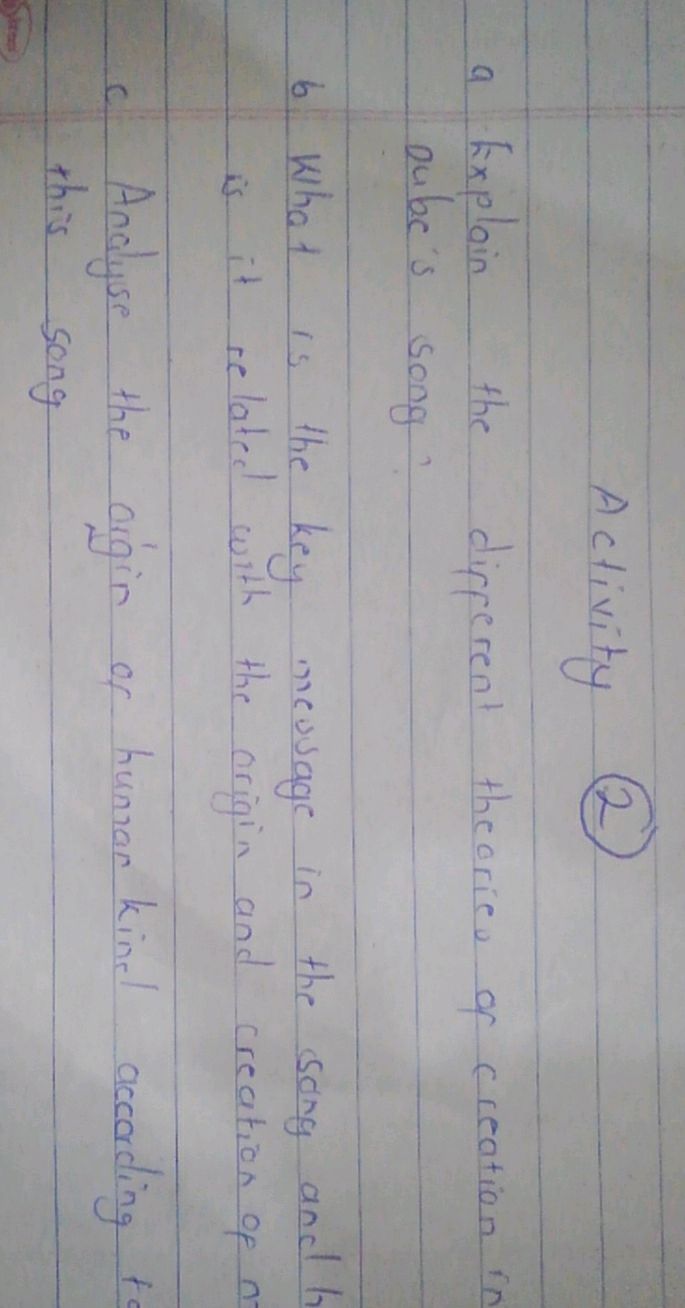 Activity 2
a Explain the different theories of creation in
Dube's song?
b What is the key message in the song and h
is it related with the origin and creation of m
c Analyse the origin of human kind according to
this song